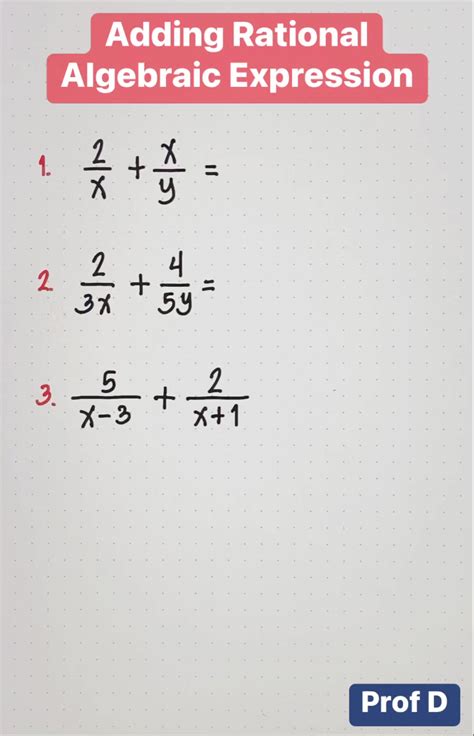 Adding Rational
Algebraic Expression
1. 2/x + x/y =
2. 2/3x + 4/5y =
3. 5/x-3 + 2/x+1
Prof D